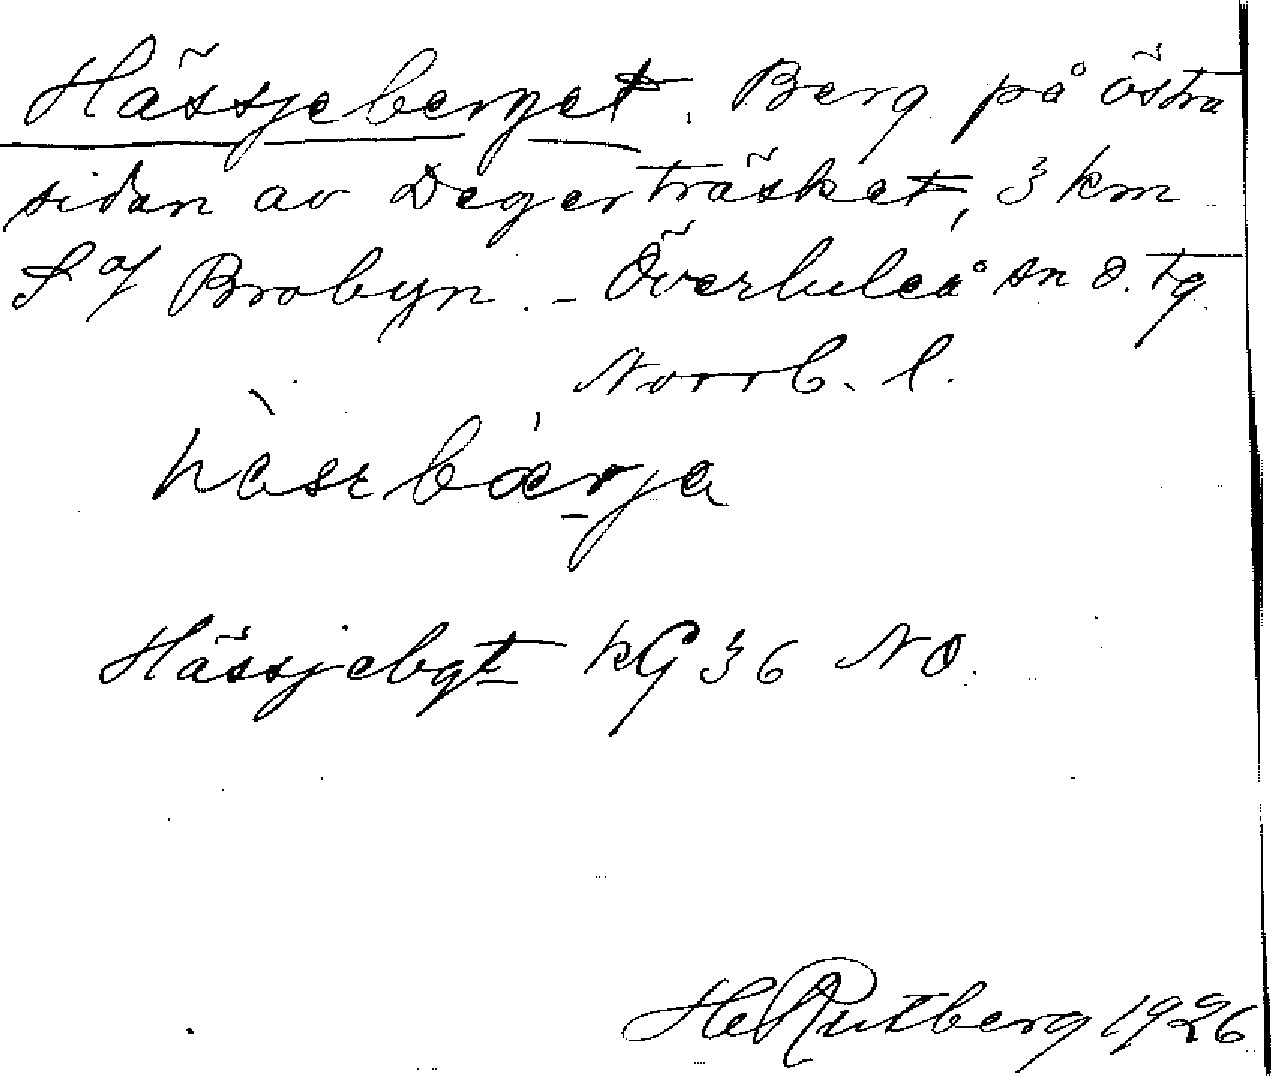 Hässjeberget. Berg på östra
sidan av Degerträsket, 3 km
S of Brobyn. – Överluleå sn o. tg
Norrb. l.
Hässjebgt KG 36 NO.
HeRutberg 1926